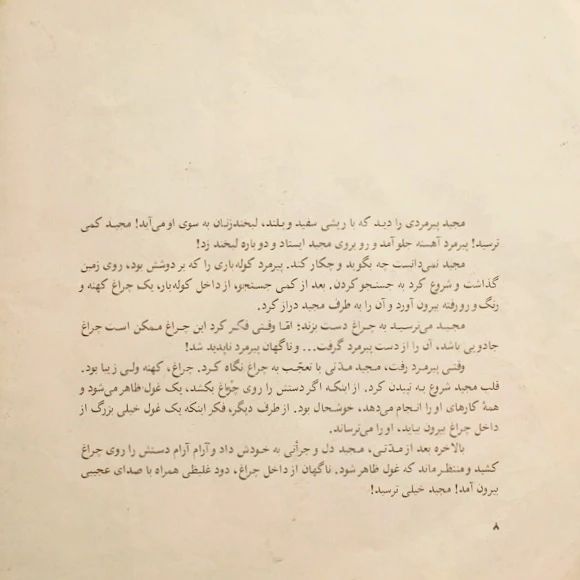 مجید پیرمردی را دید که با ریشی سفید و بلند، لبخندزنان به سوی او می‌آید! مجید کمی
ترسید! پیرمرد آهسته جلو آمد و روبروی مجید ایستاد و دوباره لبخند زد!
مجید نمی‌دانست چه بگوید و چکار کند. پیرمرد کوله‌باری را که بر دوشش بود، روی زمین
گذاشت و شروع کرد به جستجو کردن. بعد از کمی جستجو، از داخل کوله‌بار، یک چراغ کهنه و
رنگ و رورفته بیرون آورد و آن را به طرف مجید دراز کرد.
مجید می‌ترسید به چراغ دست بزند؛ امّا وقتی فکر کرد این چراغ ممکن است چراغ
جادویی باشد، آن را از دست پیرمرد گرفت... و ناگهان پیرمرد ناپدید شد!
وقتی پیرمرد رفت، مجید مدّتی با تعجّب به چراغ نگاه کرد. چراغ، کهنه ولی زیبا بود.
قلب مجید شروع به تپیدن کرد. از اینکه اگر دستش را روی چراغ بکشد، یک غول ظاهر می‌شود و
همهٔ کارهای او را انجام می‌دهد، خوشحال بود. از طرف دیگر، فکر اینکه یک غول خیلی بزرگ از
داخل چراغ بیرون بیاید، او را می‌ترساند.
بالاخره بعد از مدّتی، مجید دل و جرأتی به خودش داد و آرام آرام دستش را روی چراغ
کشید و منتظر ماند که غول ظاهر شود. ناگهان از داخل چراغ، دود غلیظی همراه با صدای عجیبی
بیرون آمد! مجید خیلی ترسید!
۸